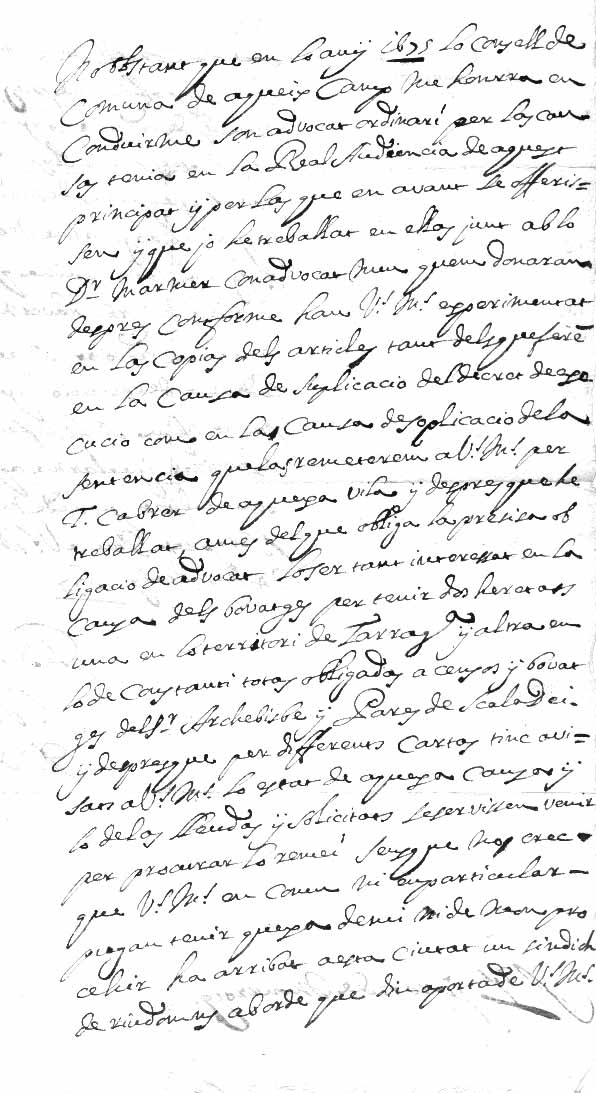 No obstant que en lo any 1675 lo consell de
Comuna de aqueix Camp me honrra en
Conduirme son advocat ordinari per las cau
sas tenia en la Real Audiencia de aquest
principat y per las que en avant se offeris=
sen y que jo he treballat en ellas junt ab lo
Dr Marmer Conadvocat meu quem donaran
despres Conforme hau Vs. Ms. experimentat
en las Copias dels articles tant dels que ferē
en la Causa de suplicacio del decret de exe
cucio com en la Causa de soplicacio de la
sentencia que las remeterem a Vs. Ms. per
T. Cabrer de aquexa vila y despres que he
treballat, ames del que obliga la presisa ob
ligacio de advocat lo ser tant interessat en la
Causa dels bovatges per tenir dos heretats
una en lo territori de Tarragª y altra en
lo de Constanti totas obligadas a censos y bovat
ges del Sr. Archebisbe y Pares de Scala Dei.
y despres que per differents Cartas tinc avi=
sats a Vs. Ms. lo estat de aquexa Causa y
lo de las lleudas y solicitats se servissen venir
per procurar lo remei sens que nos crec
que Vs. Ms. en Comu ni en particular=
pugan tenir quexa de mi ni de mon pro
cehir ha arribat a esta Ciutat un sindich
de riudoms ab orde que diu aporta de Vs. Ms.